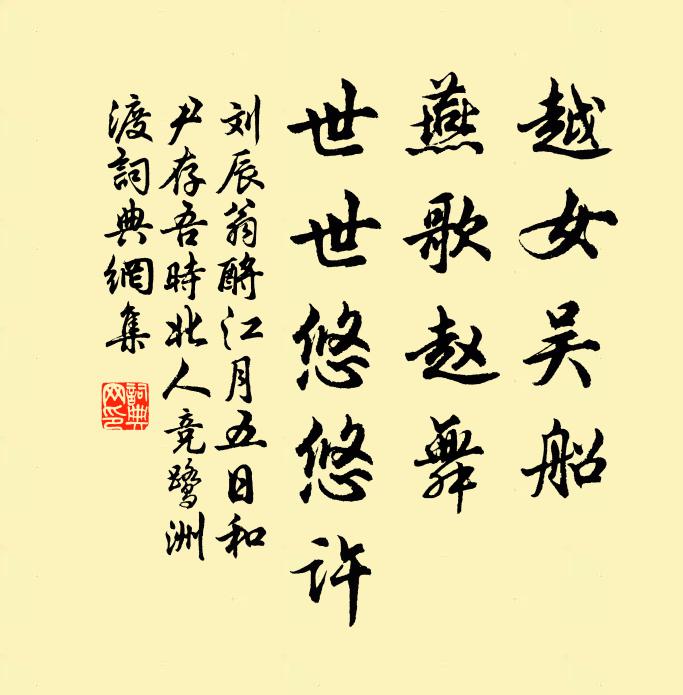 越女吴船
燕歌赵舞
世世悠悠许
刘辰翁酹江月五日和
尹存吾時北人竞鹭洲
渡詞典網集
詞典網印